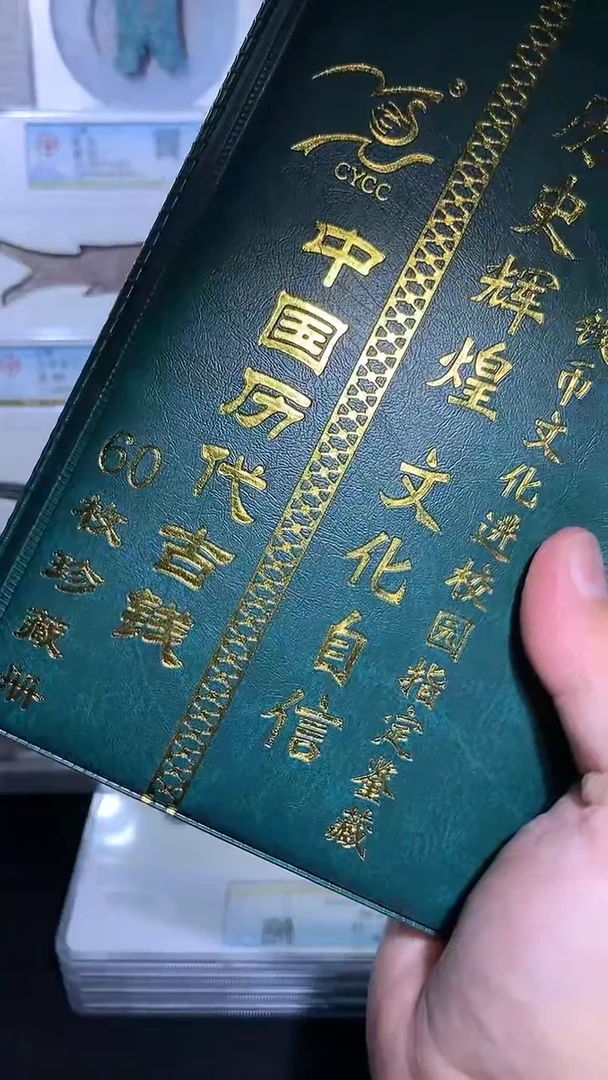 ®
CYCC
中国历代古钱
60枚珍藏册
历史辉煌 文化自信
钱币文化进校园指定鉴藏